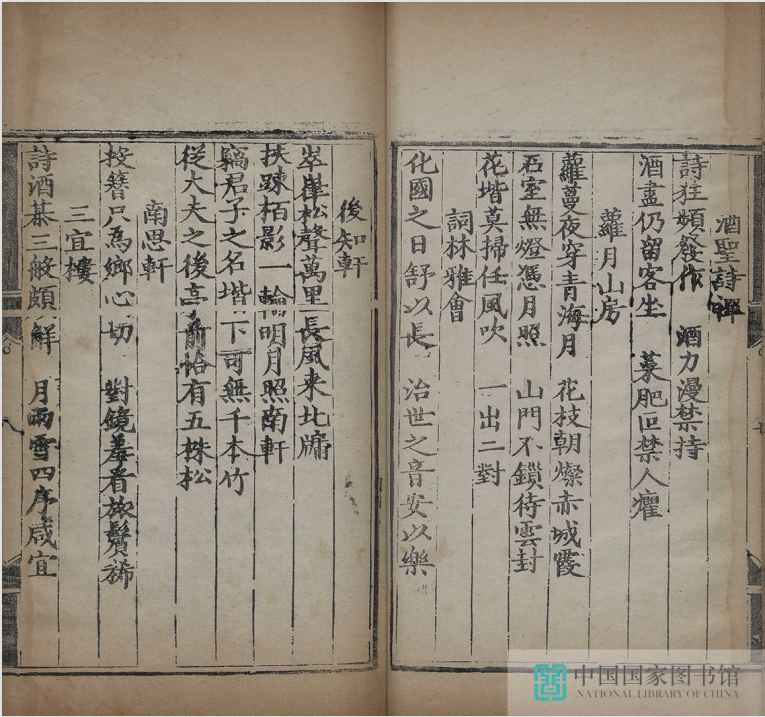 酒聖詩禪
詩狂頻發作 酒力漫禁持
酒盡仍留客坐 菜肥叵禁人癯
蘿月山房
蘿蔓夜穿青海月 花枝朝燦赤城霞
石室無燈憑月照 山門不鎖待雲封
花堦莫掃任風吹 一出二對
詞林雅會
化國之日舒以長 治世之音安以樂
後知軒
崒嵂松聲萬里長風来北牖
扶踈栢影一輪明月照南軒
竊君子之名堦下可無千本竹
從大夫之後亭前恰有五株松
南思軒
投簪只爲鄉心切 對鏡羞看旅鬢稀
三宜樓
詩酒棊三般頗解 月雨雪四序咸宜
中国国家图书馆
NATIONAL LIBRARY OF CHINA